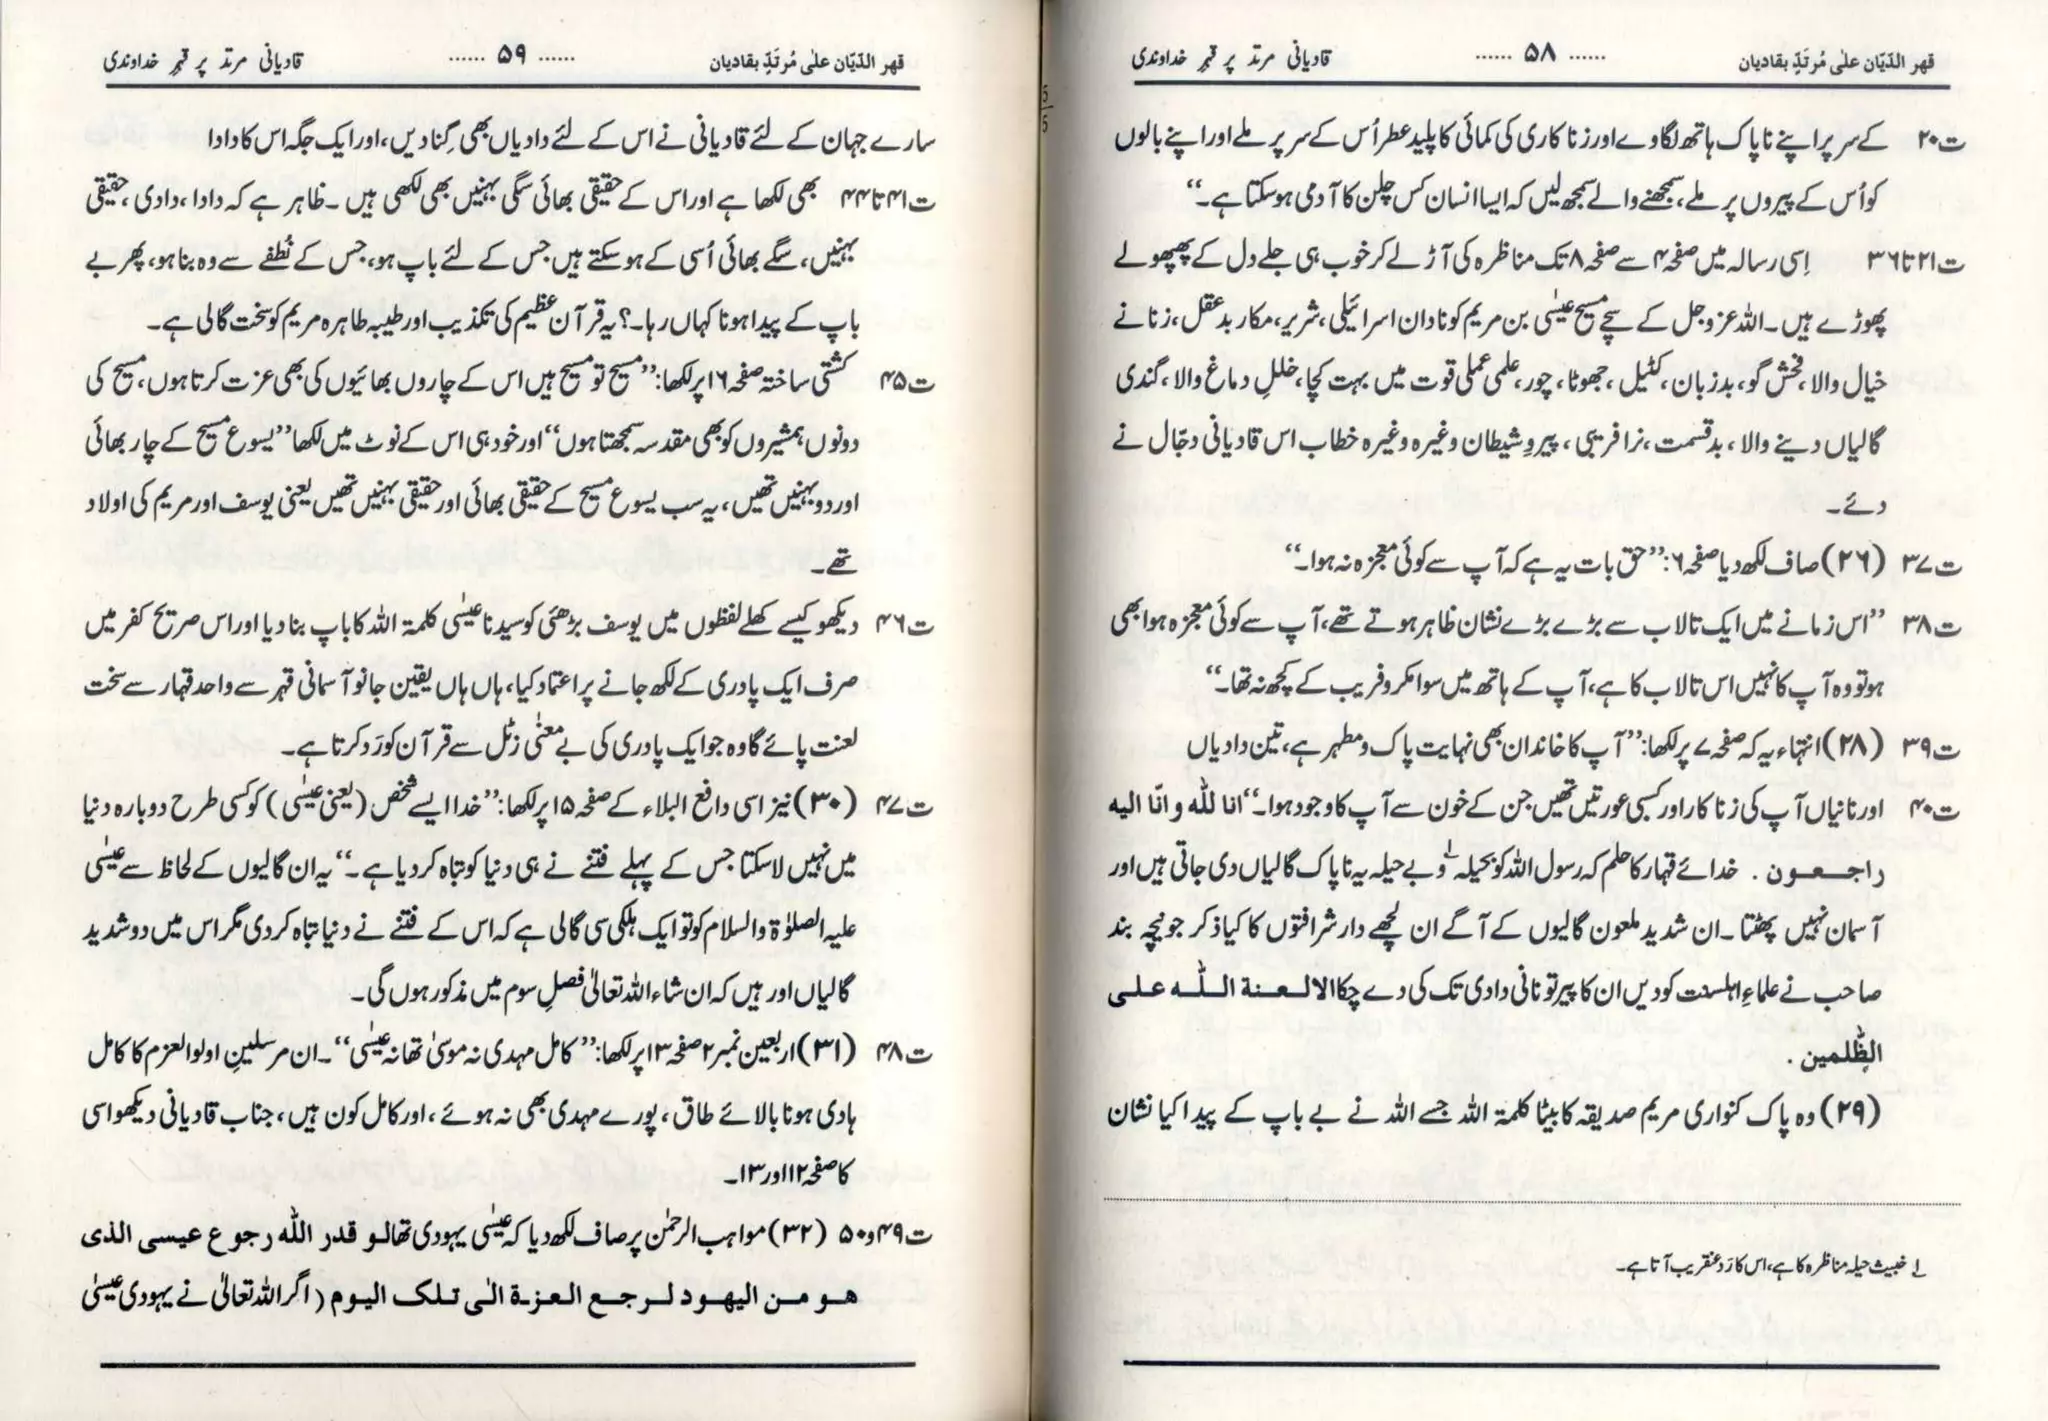 قهر الدّيّان علٰى مُرتَدٍّ بقاديان ...... ۵۸ ...... قادیانی مرتد پر قہرِ خداوندی
ت۲۰ کے سر پر اپنے ناپاک ہاتھ لگاوے اور زنا کاری کی کمائی کا پلید عطر اُس کے سر پر ملے اور اپنے بالوں
کو اُس کے پیروں پر ملے، سمجھنے والے سمجھ لیں کہ ایسا انسان کس چلن کا آدمی ہوسکتا ہے۔‘‘
ت۲۱ تا ۳۶ اِسی رسالہ میں صفحہ ۴ سے صفحہ ۸ تک مناظرہ کی آڑ لے کر خوب ہی جلے دل کے پھپھولے
پھوڑے ہیں۔ اللہ عزوجل کے سچے مسیح عیسٰی بن مریم کو نادان اسرائیلی، شریر، مکار بدعقل، زنانے
خیال والا، فحش گو، بدزبان، کٹیل، جھوٹا، چور، علمی عملی قوت میں بہت کچا، خللِ دماغ والا، گندی
گالیاں دینے والا، بدقسمت، نرا فریبی، پیروِ شیطان وغیرہ وغیرہ خطاب اس قادیانی دجّال نے
دئے۔
ت۳۷ (۲۶) صاف لکھ دیا صفحہ ۶: ’’حق بات یہ ہے کہ آپ سے کوئی معجزہ نہ ہوا۔‘‘
ت۳۸ ’’اس زمانے میں ایک تالاب سے بڑے بڑے نشان ظاہر ہوتے تھے، آپ سے کوئی معجزہ ہوا بھی
ہو تو وہ آپ کا نہیں اس تالاب کا ہے، آپ کے ہاتھ میں سوا مکر و فریب کے کچھ نہ تھا۔‘‘
ت۳۹ (۲۸) انتہاء یہ کہ صفحہ ۷ پر لکھا: ’’آپ کا خاندان بھی نہایت پاک و مطہر ہے، تین دادیاں
ت۴۰ اور نانیاں آپ کی زنا کار اور کسبی عورتیں تھیں جن کے خون سے آپ کا وجود ہوا۔‘‘ انا للّٰه و انّا اليه
راجــعــون . خدائے قہار کا حلم کہ رسول اللہ کو بحیلہ لے و بے حیلہ یہ ناپاک گالیاں دی جاتی ہیں اور
آسمان نہیں پھٹتا۔ ان شدید ملعون گالیوں کے آگے ان لچھے دار شرافتوں کا کیا ذکر جو نیچہ بند
صاحب نے علماءِ اہلسنت کو دیں ان کا پیر تو نانی دادی تک کی دے چکا الا لــعــنة الــلّــه عــلــى
الظّٰلمين .
(۲۹) وہ پاک کنواری مریم صدیقہ کا بیٹا کلمۃ اللہ جسے اللہ نے بے باپ کے پیدا کیا نشان
لے خبیث حیلہ مناظرہ کا ہے، اس کا رَد عنقریب آتا ہے۔
قهر الدّيّان علٰى مُرتَدٍّ بقاديان ...... ۵۹ ...... قادیانی مرتد پر قہرِ خداوندی
سارے جہان کے لئے قادیانی نے اس کے لئے دادیاں بھی گِنا دیں، اور ایک جگہ اس کا دادا
ت۴۱ تا ۴۴ بھی لکھا ہے اور اس کے حقیقی بھائی سگی بہنیں بھی لکھی ہیں۔ ظاہر ہے کہ دادا، دادی، حقیقی
بہنیں، سگے بھائی اُسی کے ہوسکتے ہیں جس کے لئے باپ ہو، جس کے نُطفے سے وہ بنا ہو، پھر بے
باپ کے پیدا ہونا کہاں رہا۔؟ یہ قرآنِ عظیم کی تکذیب اور طیبہ طاہرہ مریم کو سخت گالی ہے۔
ت۴۵ کشتی ساختہ صفحہ ۱۶ پر لکھا: ’’مسیح تو مسیح ہیں اس کے چاروں بھائیوں کی بھی عزت کرتا ہوں، مسیح کی
دونوں ہمشیروں کو بھی مقدسہ سمجھتا ہوں‘‘ اور خود ہی اس کے نوٹ میں لکھا ’’یسوع مسیح کے چار بھائی
اور دو بہنیں تھیں، یہ سب یسوع مسیح کے حقیقی بھائی اور حقیقی بہنیں تھیں یعنی یوسف اور مریم کی اولاد
تھے۔
ت۴۶ دیکھو کیسے کھلے لفظوں میں یوسف بڑھئی کو سیدنا عیسٰی کلمۃ اللہ کا باپ بنا دیا اور اس صریح کفر میں
صرف ایک پادری کے لکھ جانے پر اعتماد کیا، ہاں ہاں یقین جانو آسمانی قہر سے واحد قہار سے سخت
لعنت پائے گا وہ جو ایک پادری کی بے معنٰی زٹل سے قرآن کو رَد کرتا ہے۔
ت۴۷ (۳۰) نیز اسی دافع البلاء کے صفحہ ۱۵ پر لکھا: ’’خدا ایسے شخص (یعنی عیسٰی) کو کسی طرح دوبارہ دنیا
میں نہیں لاسکتا جس کے پہلے فتنے نے ہی دنیا کو تباہ کر دیا ہے۔‘‘ یہ ان گالیوں کے لحاظ سے عیسٰی
علیہ الصلوٰۃ والسلام کو تو ایک ہلکی سی گالی ہے کہ اس کے فتنے نے دنیا تباہ کردی مگر اس میں دو شدید
گالیاں اور ہیں کہ ان شاء اللہ تعالیٰ فصلِ سوم میں مذکور ہوں گی۔
ت۴۸ (۳۱) اربعین نمبر ۲ صفحہ ۱۳ پر لکھا: ’’کامل مہدی نہ موسیٰ تھا نہ عیسٰی‘‘۔ ان مرسلینِ اولوالعزم کا کامل
ہادی ہونا بالائے طاق، پورے مہدی بھی نہ ہوئے، اور کامل کون ہیں، جناب قادیانی دیکھو اسی
کا صفحہ ۱۲ اور ۱۳۔
ت۴۹ و ۵۰ (۳۲) مواہب الرحمٰن پر صاف لکھ دیا کہ عیسٰی یہودی تھا لــو قدر الله رجوع عيسى الذى
هــو مــن اليهــود لــرجــع الــعــزة الٰى تــلــك اليوم (اگر اللہ تعالیٰ نے یہودی عیسٰی